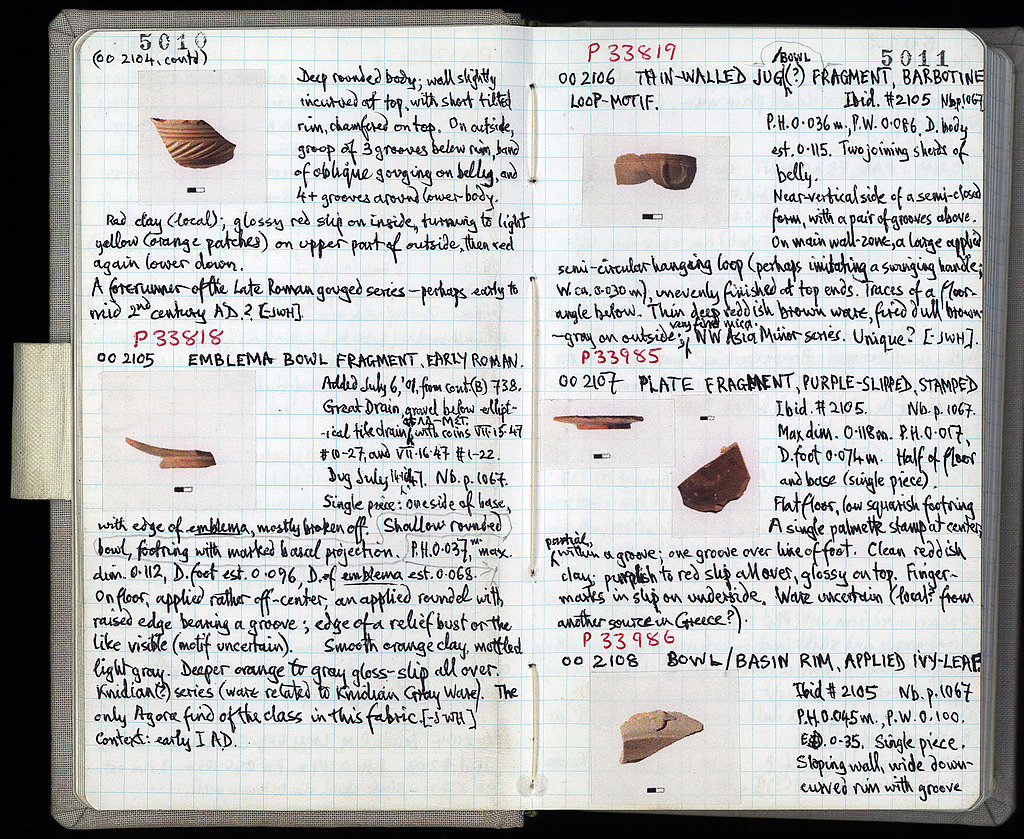 5010
(OO 2104, contd)
Deep rounded body; wall slightly
incurved at top, with short tilted
rim, chamfered on top. On outside,
group of 3 grooves below rim, band
of oblique gouging on belly, and
4+ grooves around lower body.
Red clay (local); glossy red slip on inside, turning to light
yellow (orange patches) on upper part of outside, then red
again lower down.
A forerunner of the Late Roman gouged series – perhaps early to
mid 2nd century AD.? [-JWH].
P 33818
OO 2105 EMBLEMA BOWL FRAGMENT, EARLY ROMAN.
Added July 6, '01, from cont. (B) 738.
Great Drain, gravel below ellipt-
-ical tile drain, with coins VII·15·47
#10-27, and VII·16·47 #1-22.
Dug July 14-16, 47. Nb. p. 1067.
Single piece: one side of base,
with edge of emblema, mostly broken off. Shallow rounded
bowl, footring with marked basal projection. P.H. 0·037, m max.
dim. 0·112, D. foot est. 0·096, D. of emblema est. 0·068.
On floor, applied rather off-center, an applied roundel with
raised edge bearing a groove; edge of a relief bust or the
like visible (motif uncertain). Smooth orange clay, mottled
light gray. Deeper orange to gray gloss-slip all over.
Knidian(?) series (ware related to Knidian Gray Ware). The
only Agora find of the class in this fabric. [-JWH]
Context: early I AD.
P 33819
5011
/BOWL
OO 2106 THIN-WALLED JUG(?) FRAGMENT, BARBOTINE
LOOP-MOTIF.
Ibid. #2105 Nb. p. 1067
P.H. 0·036 m., P.W. 0·086, D. body
est. 0·115. Two joining sherds of
belly.
Near-vertical side of a semi-closed
form, with a pair of grooves above.
On main wall-zone, a large applied
semi-circular hanging loop (perhaps imitating a swinging handle;
W. ca. 0·030 m), unevenly finished at top ends. Traces of a floor-
angle below. Thin deep reddish brown ware, fired dull brown-
-gray on outside; very fine mica. NW Asia Minor series. Unique? [-JWH].
P 33985
OO 2107 PLATE FRAGMENT, PURPLE-SLIPPED, STAMPED
Ibid. #2105. Nb. p. 1067.
Max dim. 0·118m. P.H. 0·017,
D. foot 0·074 m. Half of floor
and base (single piece).
Flat floor, low squarish footring
A single palmette stamp at center,
partial, within a groove; one groove over line of foot. Clean reddish
clay; purplish to red slip all over, glossy on top. Finger-
marks in slip on underside. Ware uncertain (local? from
another source in Greece?).
P 33986
OO 2108 BOWL/BASIN RIM, APPLIED IVY-LEAF.
Ibid #2105 Nb. p. 1067
P.H. 0·045 m., P.W. 0·100.
0·35. Single piece.
Sloping wall, wide down-
curved rim with groove